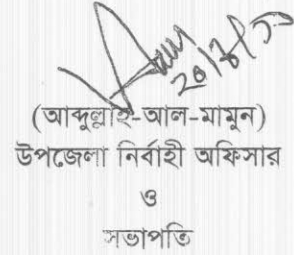 (আব্দুল্লাহ-আল-মামুন)
উপজেলা নির্বাহী অফিসার
ও
সভাপতি